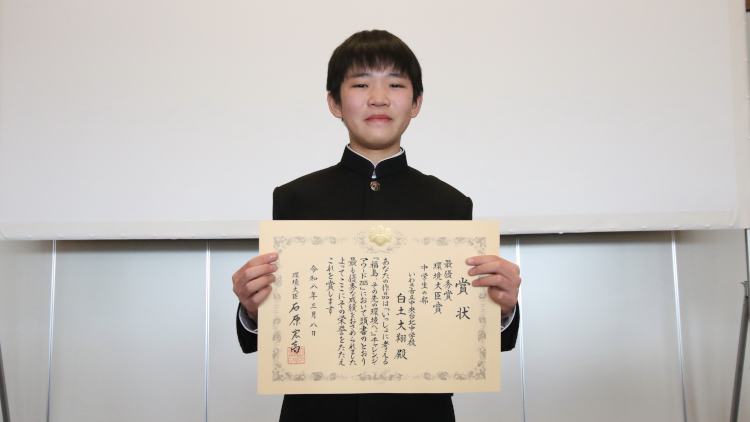 賞状
最優秀賞
環境大臣賞
中学生の部
いわき市立中央台北中学校
白土大翔 殿
あなたの作品は「いっしょに考える
「福島、その先の環境へ。」チャレンジ・
アワード2025」において頭書のとおり
最も優秀な成績をおさめられました
よってここにその栄誉をたたえ
これを賞します
令和八年三月八日
環境大臣 石原宏高